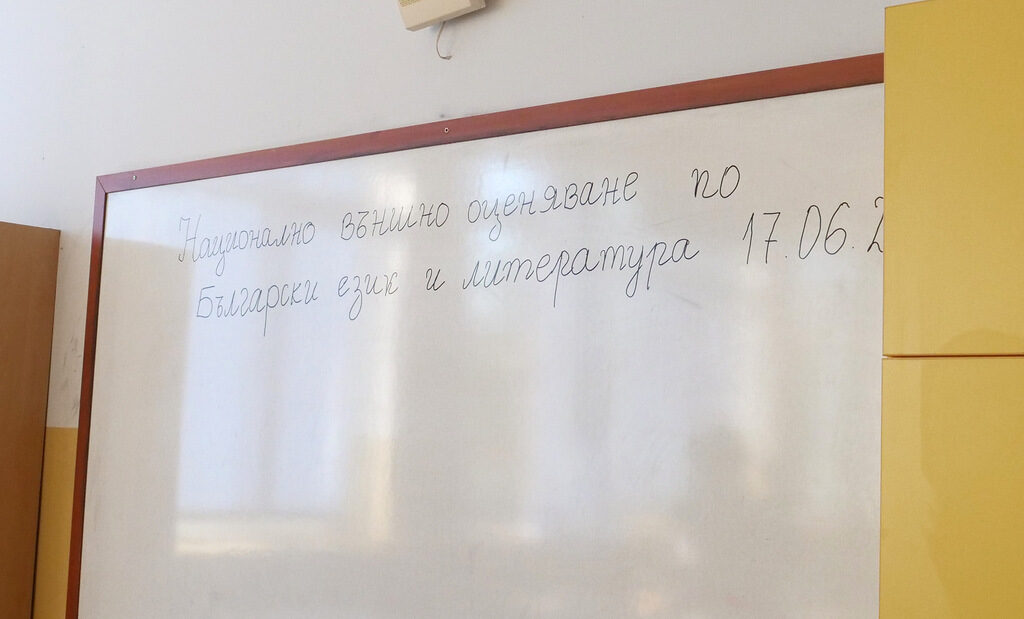 Национално външно оценяване по
Български език и литература 17.06.2